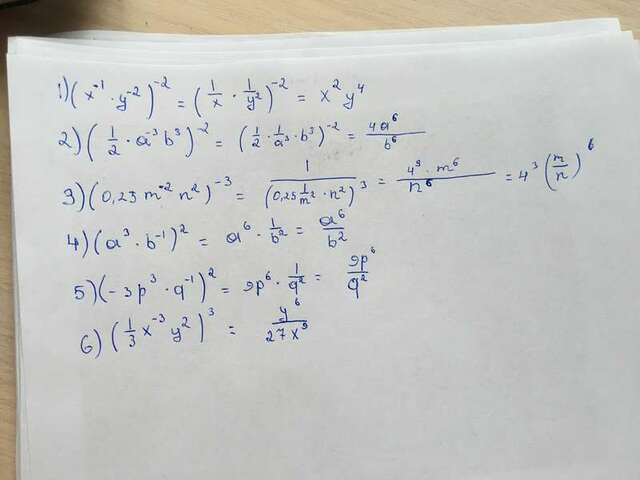 1) (x⁻¹ · y⁻²)⁻² = (1/x · 1/y²)⁻² = x²y⁴
2) (1/2 · a⁻³ b³)⁻² = (1/2 · 1/a³ · b³)⁻² = 4a⁶/b⁶
3) (0,25 m⁻² n²)⁻³ = 1/(0,25 1/m² · n²)³ = 4³ · m⁶/n⁶ = 4³ (m/n)⁶
4) (a³ · b⁻¹)² = a⁶ · 1/b² = a⁶/b²
5) (-3p³ · q⁻¹)² = 9p⁶ · 1/q² = 9p⁶/q²
6) (1/3 x⁻³ y²)³ = y⁶/27x⁹